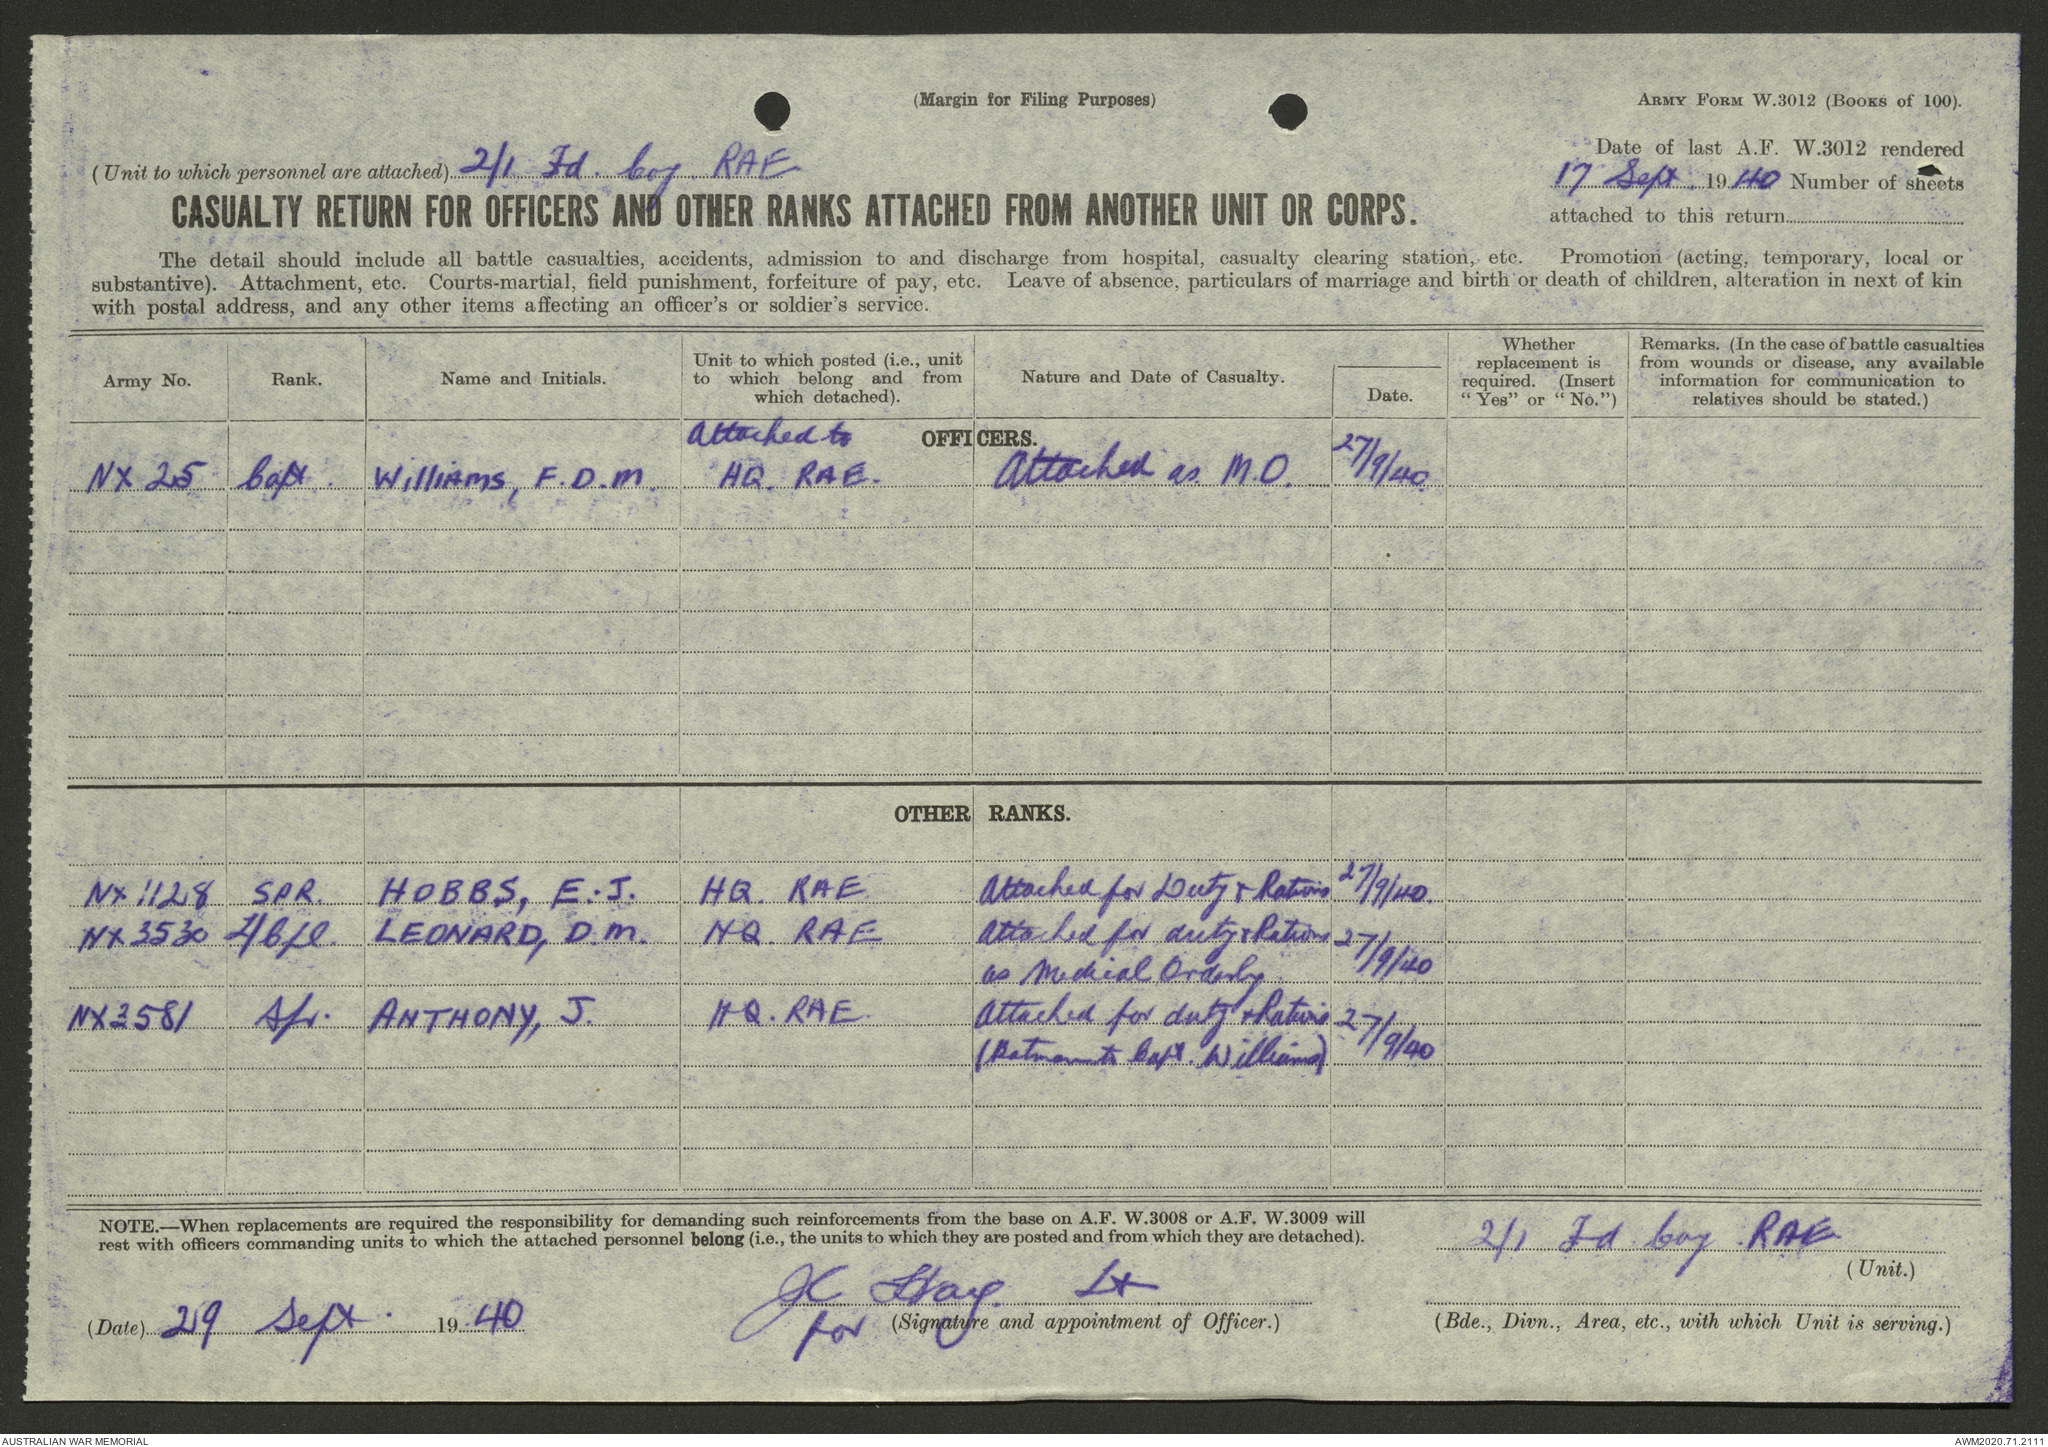 (Margin for Filing Purposes)
ARMY FORM W.3012 (BOOKS of 100).
(Unit to which personnel are attached) 2/1 Fd. Coy RAE
Date of last A.F. W.3012 rendered
17 Sept. 1940 Number of sheets
attached to this return
CASUALTY RETURN FOR OFFICERS AND OTHER RANKS ATTACHED FROM ANOTHER UNIT OR CORPS.
The detail should include all battle casualties, accidents, admission to and discharge from hospital, casualty clearing station, etc. Promotion (acting, temporary, local or
substantive). Attachment, etc. Courts-martial, field punishment, forfeiture of pay, etc. Leave of absence, particulars of marriage and birth or death of children, alteration in next of kin
with postal address, and any other items affecting an officer's or soldier's service.
Army No. Rank. Name and Initials. Unit to which posted (i.e., unit to which belong and from which detached). Nature and Date of Casualty. Date. Whether replacement is required. (Insert "Yes" or "No.") Remarks. (In the case of battle casualties from wounds or disease, any available information for communication to relatives should be stated.)
OFFICERS.
Attached to
NX 25 Capt. WilliAms, F.D.M. HQ. RAE. Attached as M.O. 27/9/40.
OTHER RANKS.
NX 1128 SPR. HOBBS, E.J. HQ RAE Attached for Duty & Rations 27/9/40.
NX 3530 L/Cpl. LEONARD, D.M. HQ. RAE Attached for duty & Rations 27/9/40
as Medical Orderly
NX3581 Spr. ANTHONY, J. HQ. RAE. Attached for duty & Rations 27/9/40
(Batman to Capt. Williams)
NOTE.—When replacements are required the responsibility for demanding such reinforcements from the base on A.F. W.3008 or A.F. W.3009 will
rest with officers commanding units to which the attached personnel belong (i.e., the units to which they are posted and from which they are detached).
2/1 Fd Coy RAE
(Unit.)
(Date) 29 Sept. 1940
Lt
for (Signature and appointment of Officer.)
(Bde., Divn., Area, etc., with which Unit is serving.)
AUSTRALIAN WAR MEMORIAL
AWM2020.71.2111